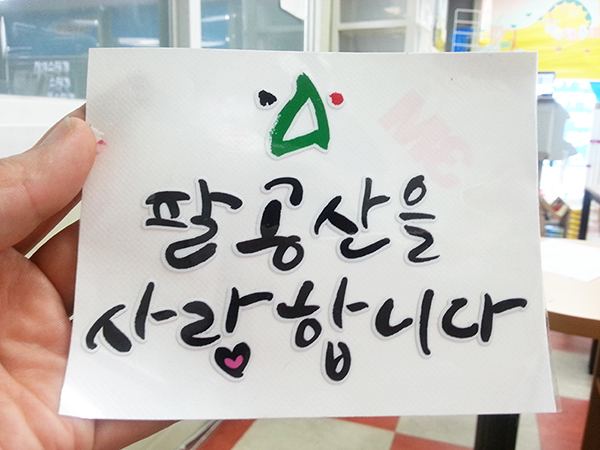 팔공산을
사랑합니다